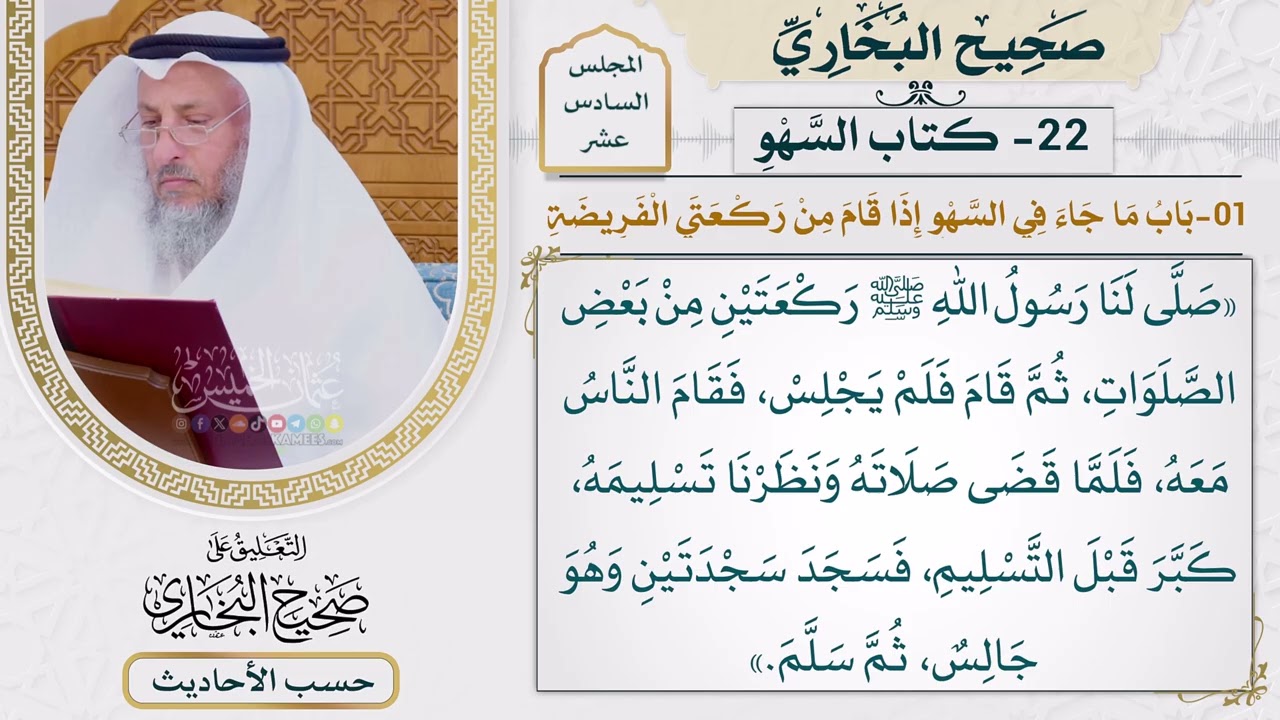 صَحِيح البُخَارِيِّ
المجلس
السادس
عشر
22- كتاب السَّهْوِ
01-بَابُ مَا جَاءَ فِي السَّهْوِ إِذَا قَامَ مِنْ رَكْعَتَيِ الْفَرِيضَةِ
«صَلَّى لَنَا رَسُولُ اللهِ ﷺ رَكْعَتَيْنِ مِنْ بَعْضِ
الصَّلَوَاتِ، ثُمَّ قَامَ فَلَمْ يَجْلِسْ، فَقَامَ النَّاسُ
مَعَهُ، فَلَمَّا قَضَى صَلَاتَهُ وَنَظَرْنَا تَسْلِيمَهُ،
كَبَّرَ قَبْلَ التَّسْلِيمِ، فَسَجَدَ سَجْدَتَيْنِ وَهُوَ
جَالِسٌ، ثُمَّ سَلَّمَ.»
عثمان الخميس
التَّعْلِيقُ عَلَى
صَحِيحِ البُخَارِيِّ
حسب الأحاديث